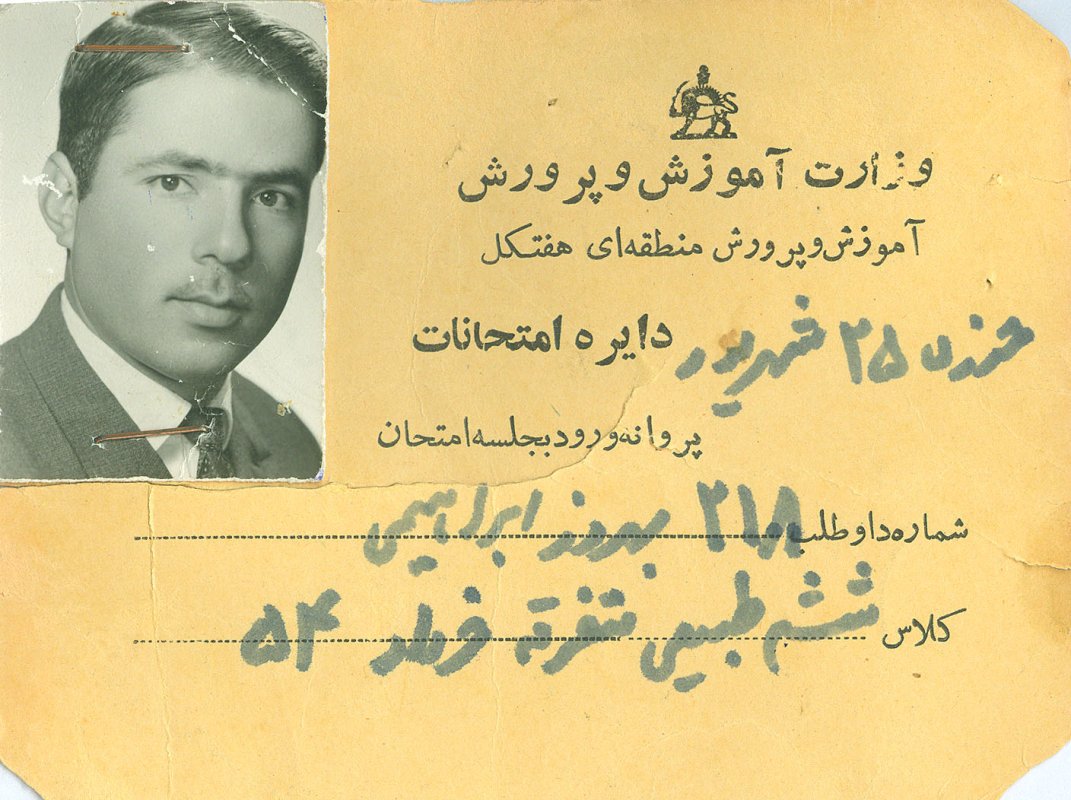 وزارت آموزش و پرورش
آموزش و پرورش منطقه‌ای هفتکل
دایره امتحانات
۲۵ شهریور
پروانه ورود بجلسه امتحان
شماره داوطلب ۲۱۸ بهروز ابراهیمی
کلاس ششم طبیعی متفرقه خرداد ۵۴